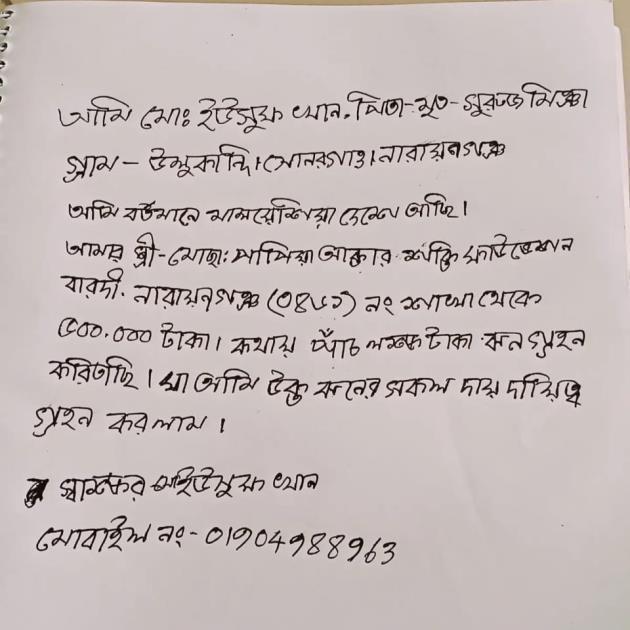 আমি মোঃ ইউসুফ খান. পিতা-মৃত-সুরুজ মিঞা
গ্রাম – উলুকান্দি। সোনারগাও। নারায়নগঞ্জ
আমি বর্তমানে মালয়েশিয়া দেশে আছি।
আমার স্ত্রী-মোছা: পাপিয়া আক্তার শক্তি ফাউন্ডেশন
বারদী. নারায়নগঞ্জ (০৪৬১) নং শাখা থেকে
৫০০.০০০ টাকা। কথায় পাঁচ লক্ষ টাকা ঋন গ্রহন
করিতাছি। যা আমি উক্ত ঋনের সকল দায় দায়িত্ব
গ্রহন করলাম।
স্বাক্ষর মোঃ ইউসুফ খান
মোবাইল নং- 01904988963